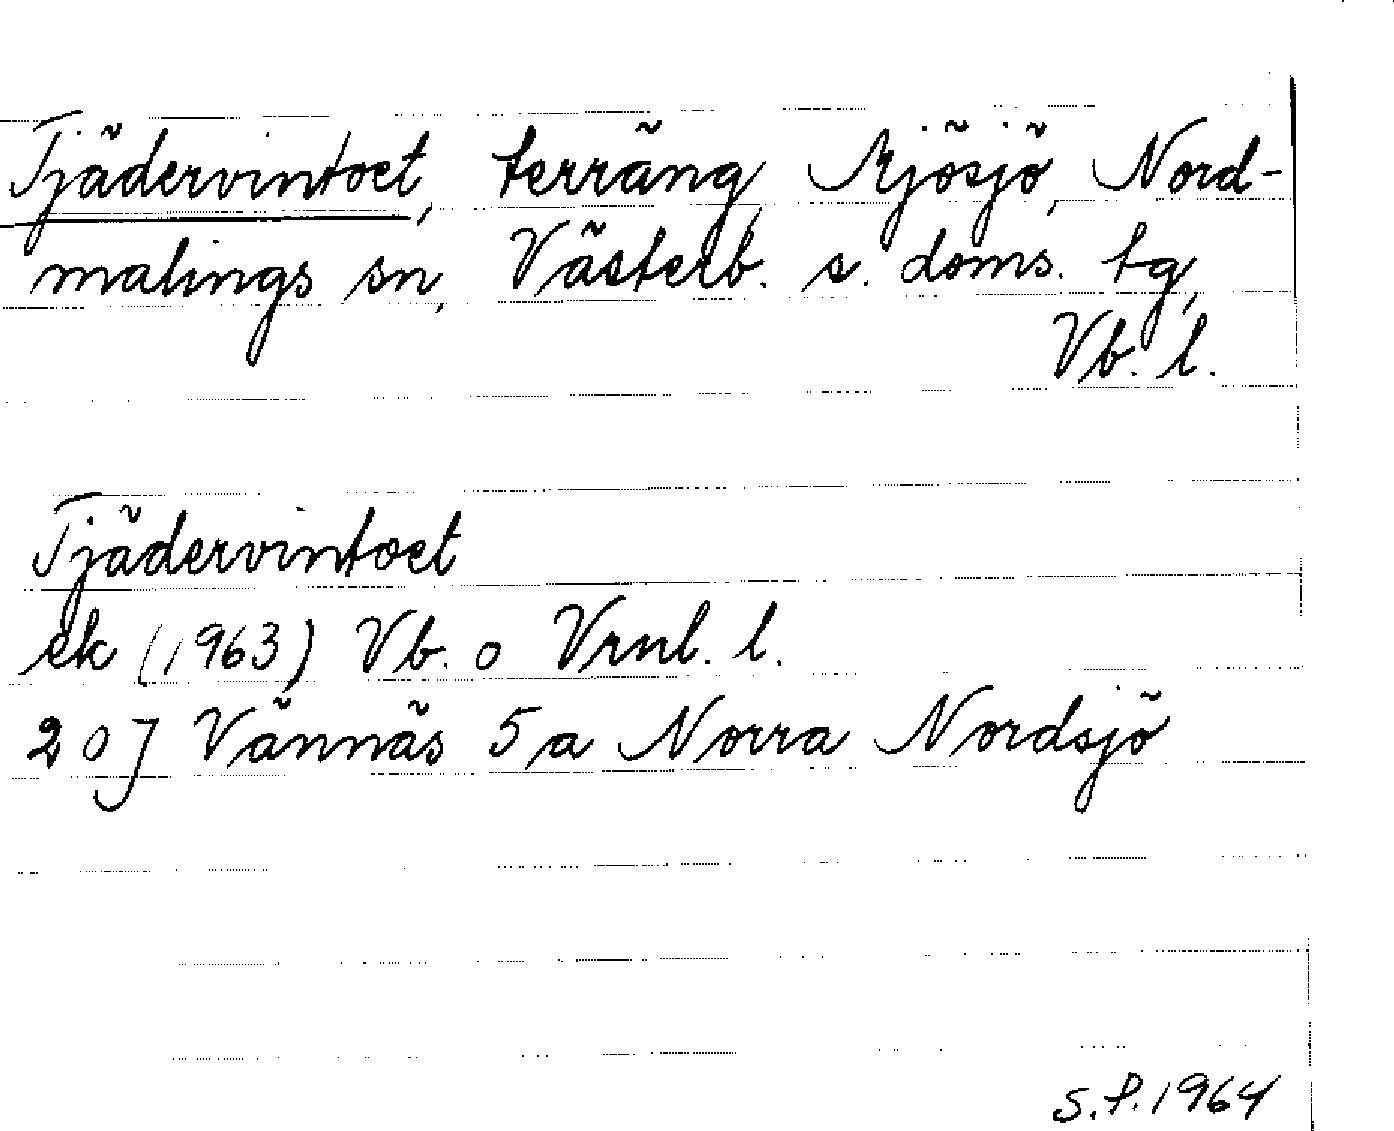 Tjädervintoet, terräng, Mjösjö, Nord-
malings sn, Västerb. s. doms. tg,
Vb. l.
Tjädervintoet
ek (1963) Vb. o Vrnl. l.
20J Vännäs 5a Norra Nordsjö
S.P.1964